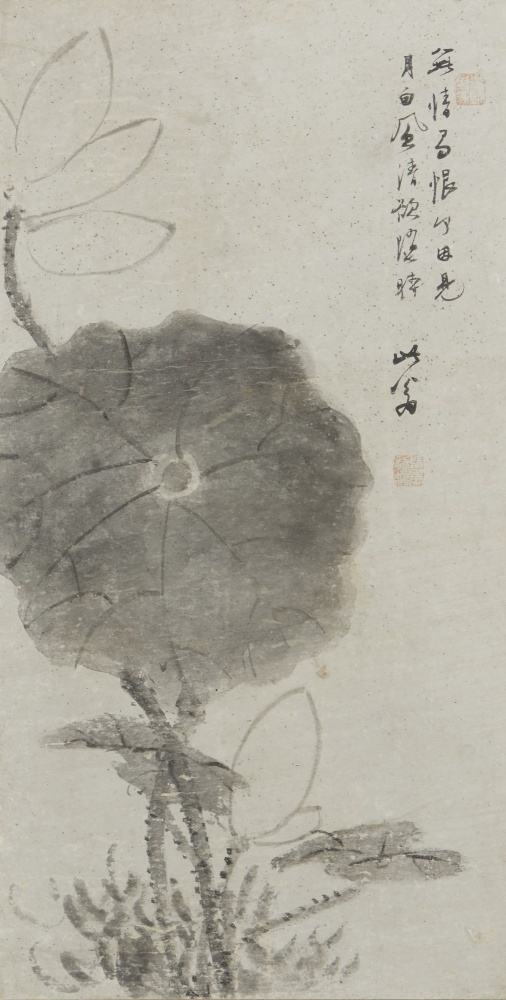 無情有恨何見
月白風清欲墮時
此翁